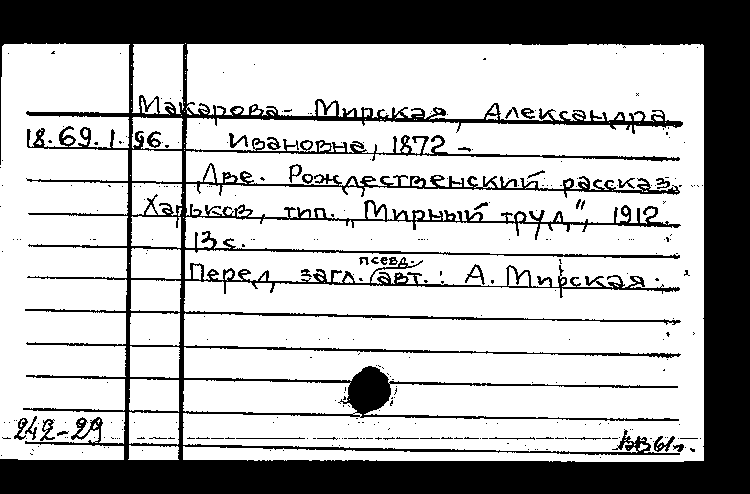 Макарова-Мирская, Александра
18.69.1.96. Ивановна, 1872 –
Две. Рождественский рассказ.
Харьков, тип. „Мирный труд", 1912.
13 с.
псевд.
Перед загл. авт.: А. Мирская.
242-29
ВВ61г.